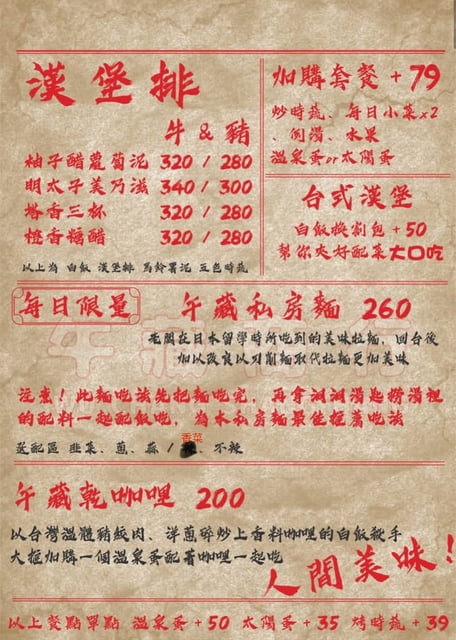 漢堡排
牛 & 豬
柚子醋蘿蔔泥 320 / 280
明太子美乃滋 340 / 300
塔香三杯 320 / 280
橙香糖醋 320 / 280
以上為 白飯 漢堡排 馬鈴薯泥 五色時蔬
加購套餐 + 79
炒時蔬、每日小菜x2
、例湯、水果
溫泉蛋or太陽蛋
台式漢堡
白飯換割包 + 50
幫你夾好配菜大口吃
每日限量
午藏私房麵 260
老闆在日本留學時所吃到的美味拉麵，回台後
加以改良以刀削麵取代拉麵更加美味
注意！此麵吃法先把麵吃完，再拿洞洞湯匙撈湯裡
的配料一起配飯吃，為本私房麵最佳推薦吃法
選配區 韭菜、蔥、蒜 / 香菜、不辣
午藏乾咖哩 200
以台灣溫體豬絞肉、洋蔥碎炒上香料咖哩的白飯殺手
大推加購一個溫泉蛋配著咖哩一起吃
人間美味！
以上餐點單點 溫泉蛋 + 50 太陽蛋 + 35 烤時蔬 + 39